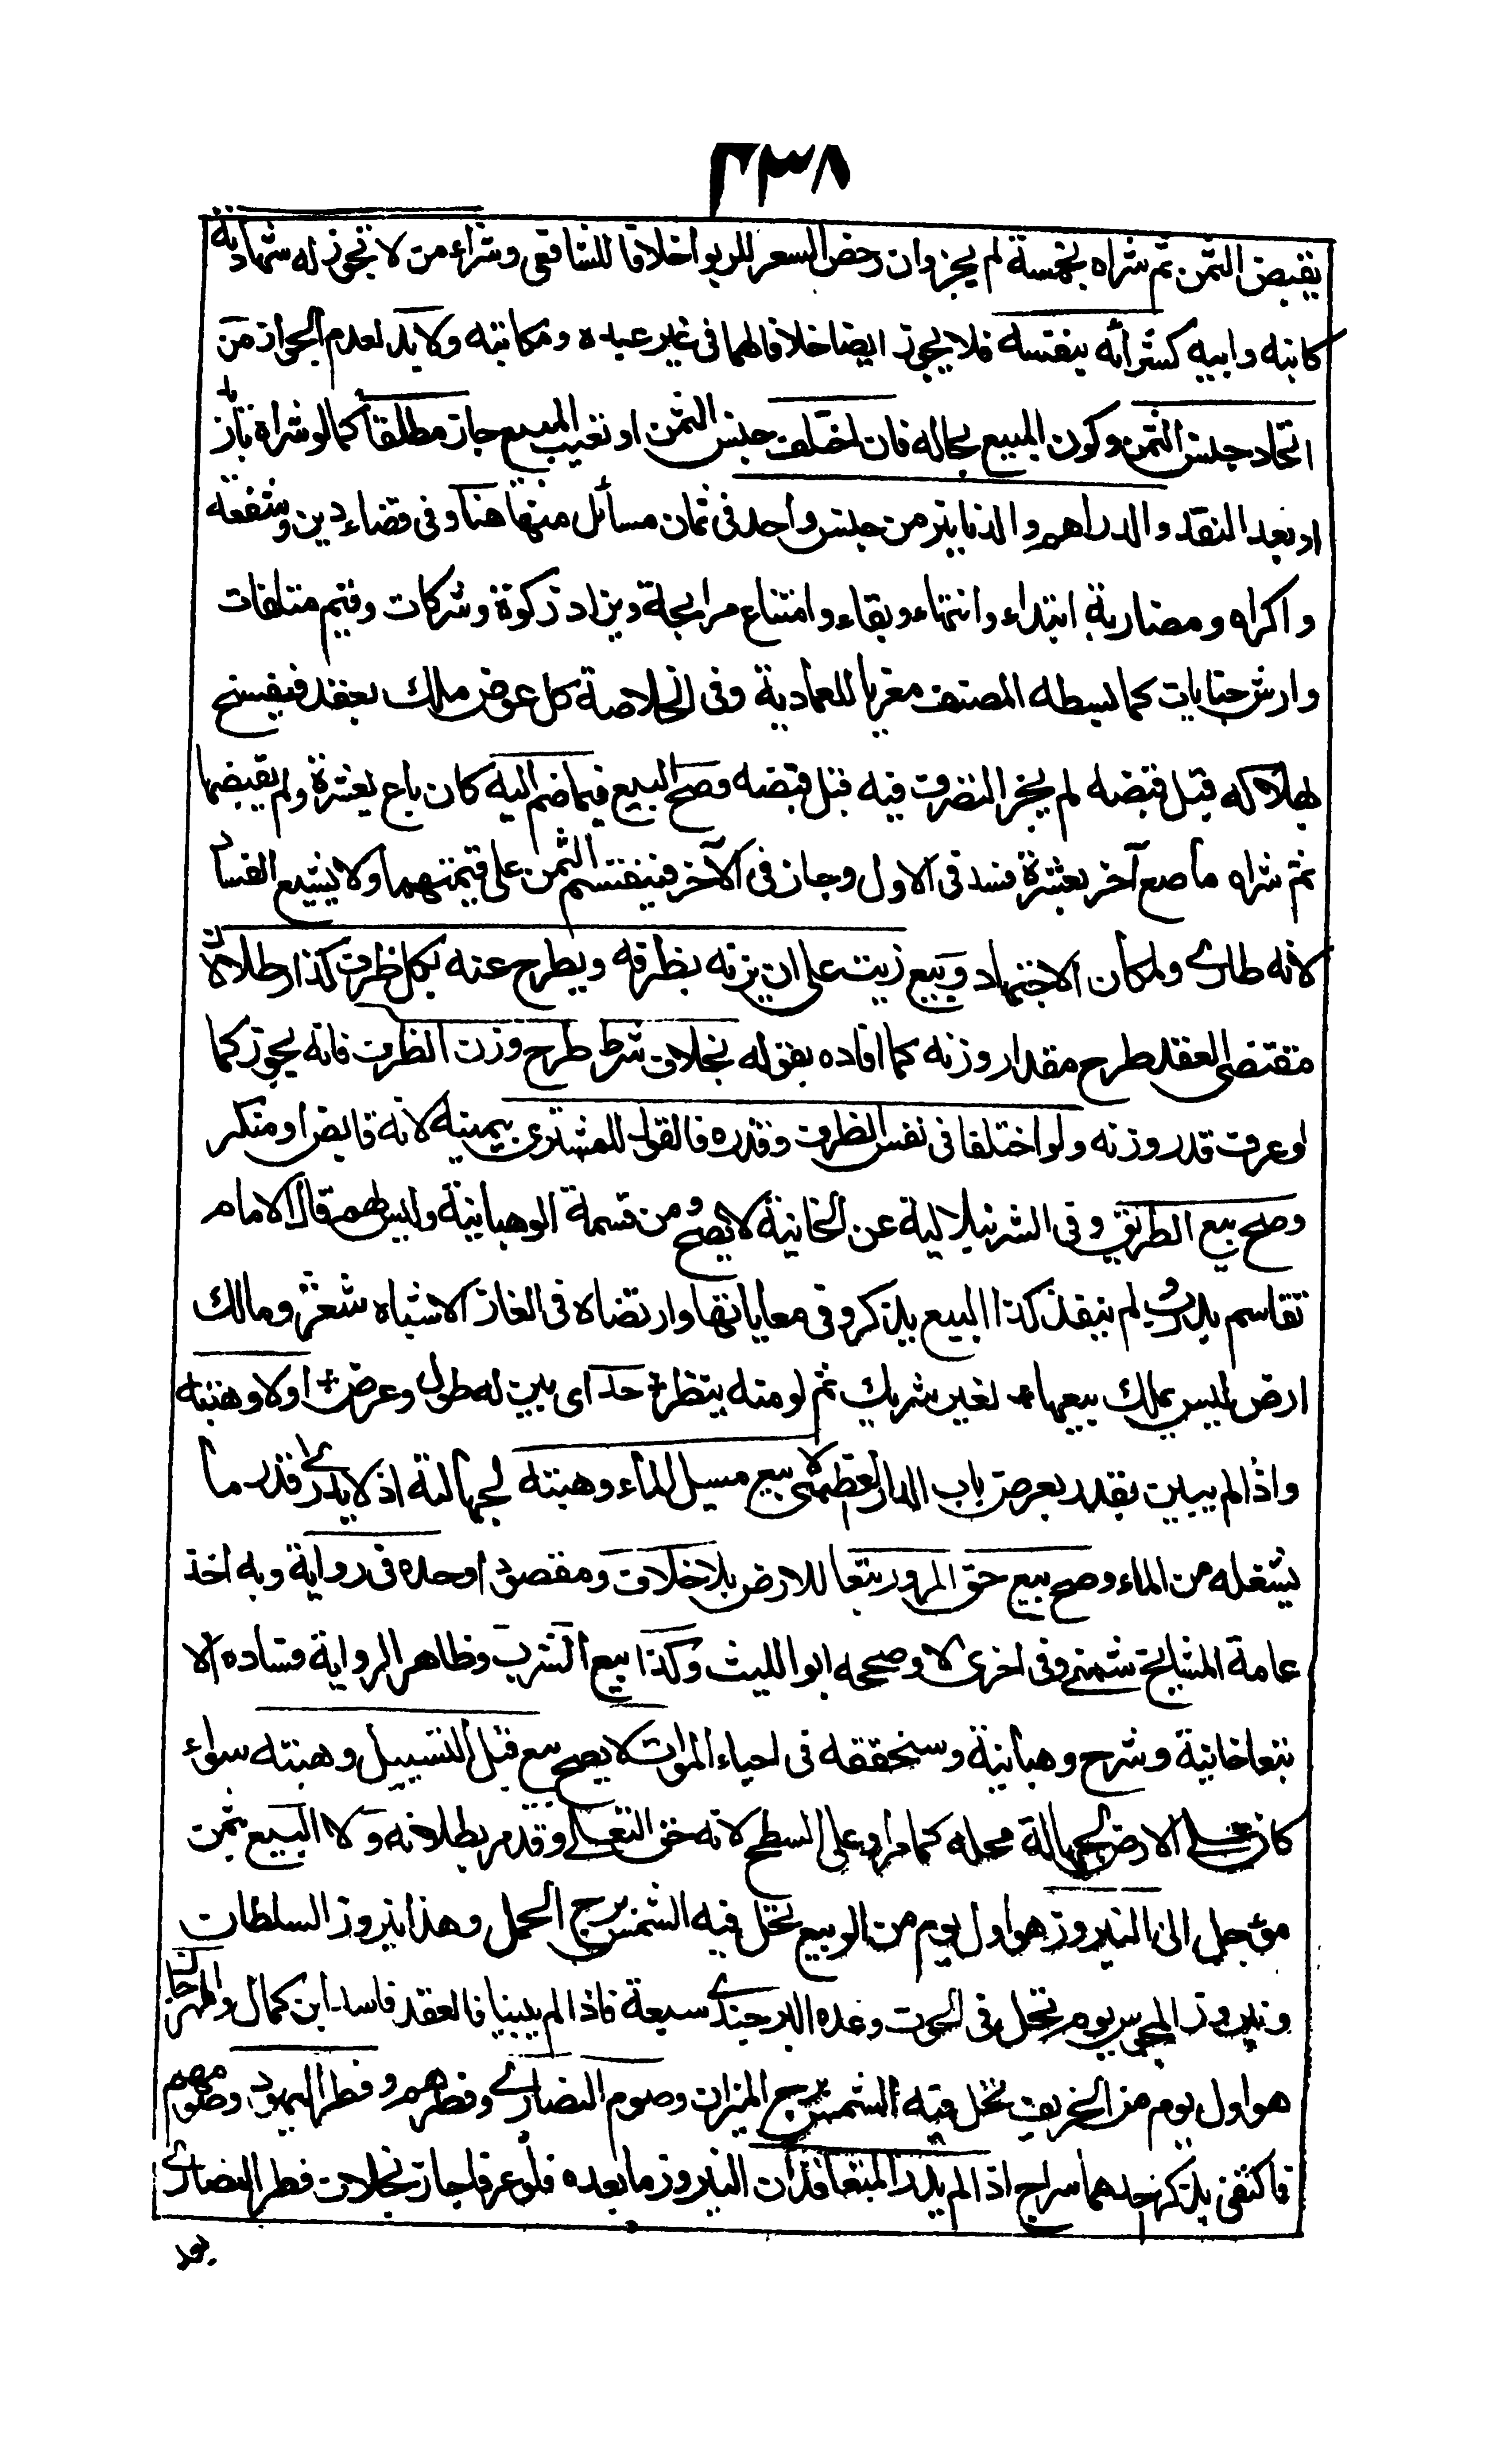 ٣٣٨
يقبض الثمن ثم شراه بخمسة لم يجز وان رخص السعر للربوا خلافا للشافعي وشراء من لا تجوز له شهادته
كابنه وابيه كشرائه بنفسه فلا يجوز ايضا خلافا لهما في غير عبده ومكاتبه ولا بد لعدم الجواز من
اتحاد جنس الثمن وكون المبيع بحاله فان اختلف جنس الثمن او تعيب المبيع جاز مطلقا كما لو شراه بازيد
او بعد النقد والدراهم والدنانير من جنس واحد في ثمان مسائل منها هنا وفي قضاء دين وشفعة
واكراه ومضاربة ابتداء وانتهاء وبقاء وامتناع مرابحة ويزاد زكوة وشركات وقيم متلفات
وارش جنايات كما بسطه المصنف معزيا للعمادية وفي الخلاصة كل عوض ملك بعقد فينفسخ
بهلاكه قبل قبضه لم يجز التصرف فيه قبل قبضه وصح البيع فيما ضم اليه كان باع بعشرة ولم يقبضها
ثم شراه مع آخر بعشرة فسد في الاول وجاز في الآخر فينقسم الثمن على قيمتهما ولا يشيع الفساد
لانه طارى ولمكان الاجتهاد وبيع زيت على ان يزنه بظرفه ويطرح عنه بكل ظرف كذا ارطالا لان
مقتضى العقد طرح مقدار وزنه كما افاده بقوله بخلاف شرط طرح وزن الظرف فانه يجوز كما
لو عرف قدر وزنه ولو اختلفا في نفس الظرف وقدره فالقول للمشترى بيمينه لانه قابض او منكر
وصح بيع الطريق وفي الشرنبلالية عن الخانية لا يصح ومن قسمة الوهبانية وليس لهم قال الامام
تقاسم بدرب لم ينفذ كذا البيع يذكر وفي معاياتها وارتضاه في الغاز الاشباه شعر ومالك
ارض ليس يملك بيعها لغير شريك ثم لو منه ينظر حد اى بين له طول وعرض اولا وهبته
واذا لم يبين يقدر بعرض باب الدار العظمى لا بيع مسيل الماء وهبته لجهالته اذ لا يدرى قدر ما
يشغله من الماء وصح بيع حق المرور تبعا للارض بلا خلاف ومقصودا وحده في رواية وبه اخذ
عامة المشايخ شمنى وفي اخرى لا وصححه ابو الليث وكذا بيع الشرب وظاهر الرواية فساده الا
تبعا خانية وشرح وهبانية وسنحققه في احياء الموات لا يصح بيع قبل التسييل وهبته سواء
كان على الارض لجهالة محله كما مر او على السطح لانه حق التعلى وقد مر بطلانه ولا البيع بثمن
مؤجل الى النيروز هو اول يوم من الربيع تحل فيه الشمس برج الحمل وهذا نيروز السلطان
ونيروز المجوس يوم تحل في الحوت وعده البرجندى سبعة فاذا لم يبينا فالعقد فاسد ابن كمال والمهرجان
هو اول يوم من الخريف تحل فيه الشمس برج الميزان وصوم النصارى وفطرهم وفطر اليهود وصومهم
فاكتفى بذكر احدهما سراج اذا لم يدر المتعاقدان النيروز وما بعده فلو عرفا جاز بخلاف فطر النصارى
بعد